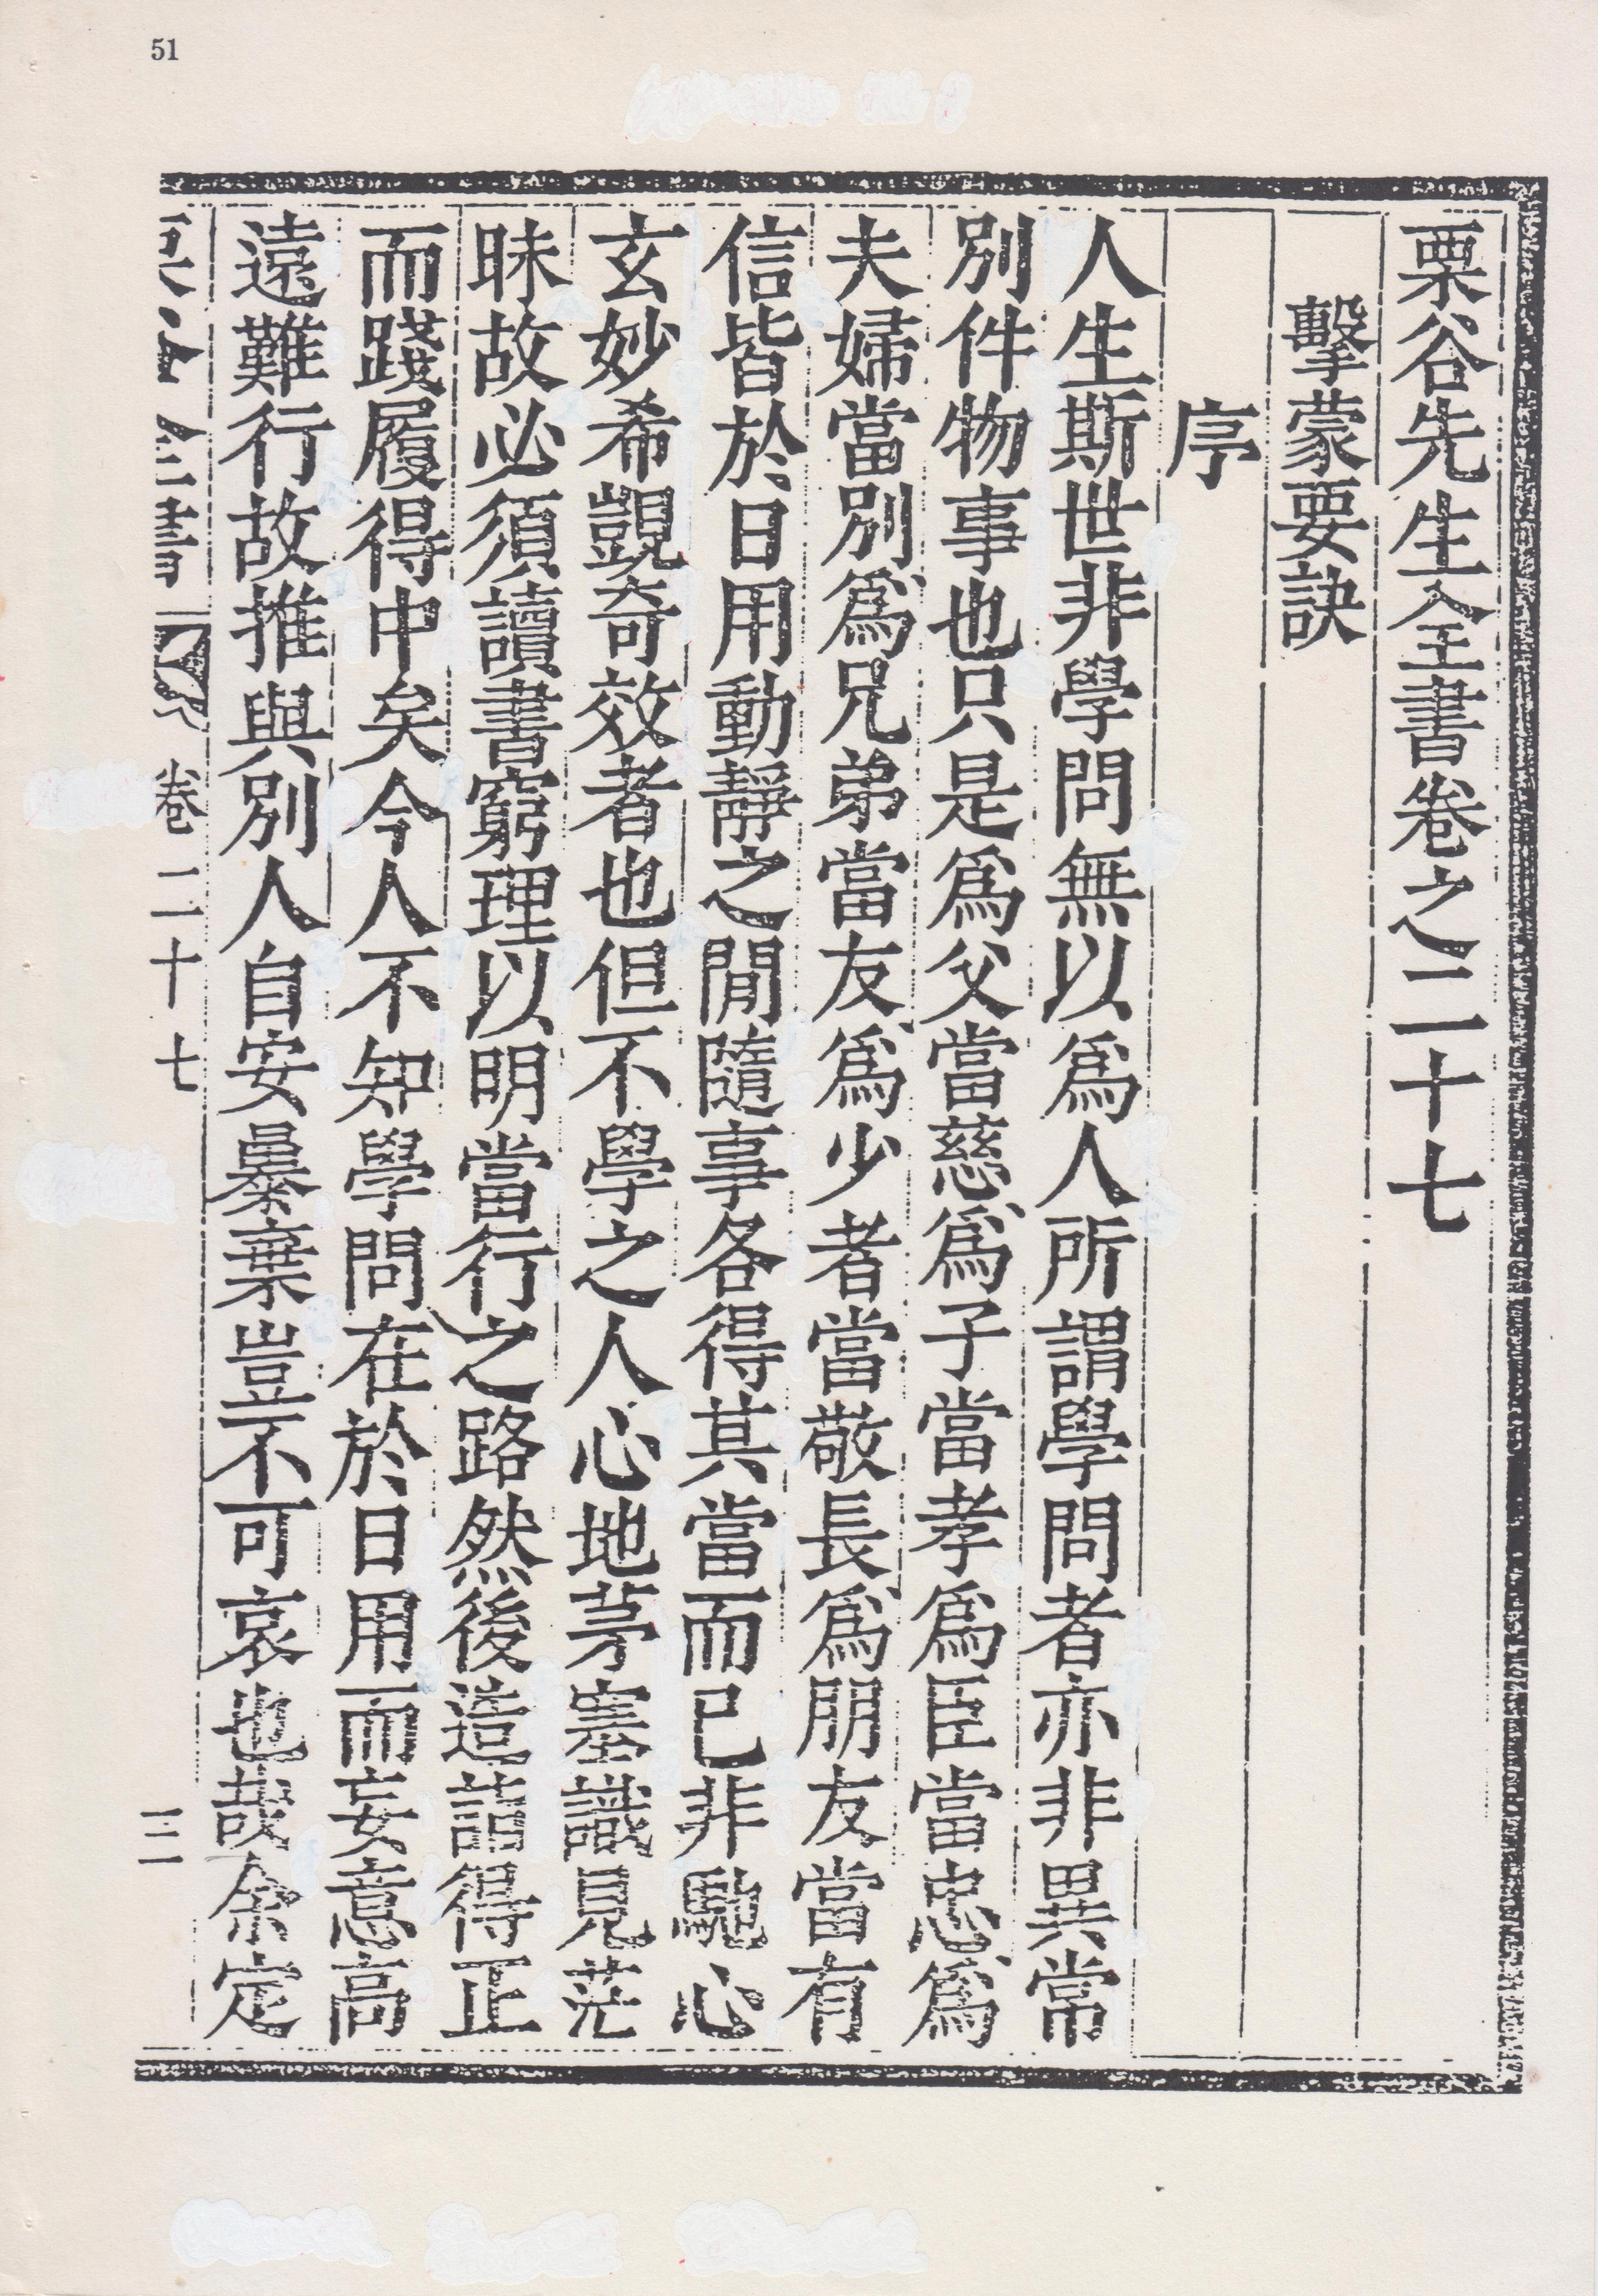 51
栗谷先生全書卷之二十七
擊蒙要訣
序
人生斯世非學問無以爲人所謂學問者亦非異常
別件物事也只是爲父當慈爲子當孝爲臣當忠爲
夫婦當別爲兄弟當友爲少者當敬長爲朋友當有
信皆於日用動靜之間隨事各得其當而已非馳心
玄妙希覬奇效者也但不學之人心地茅塞識見茫
昧故必須讀書窮理以明當行之路然後造詣得正
而踐履得中矣今人不知學問在於日用而妄意高
遠難行故推與別人自安暴棄豈不可哀也哉余定
卷二十七
三